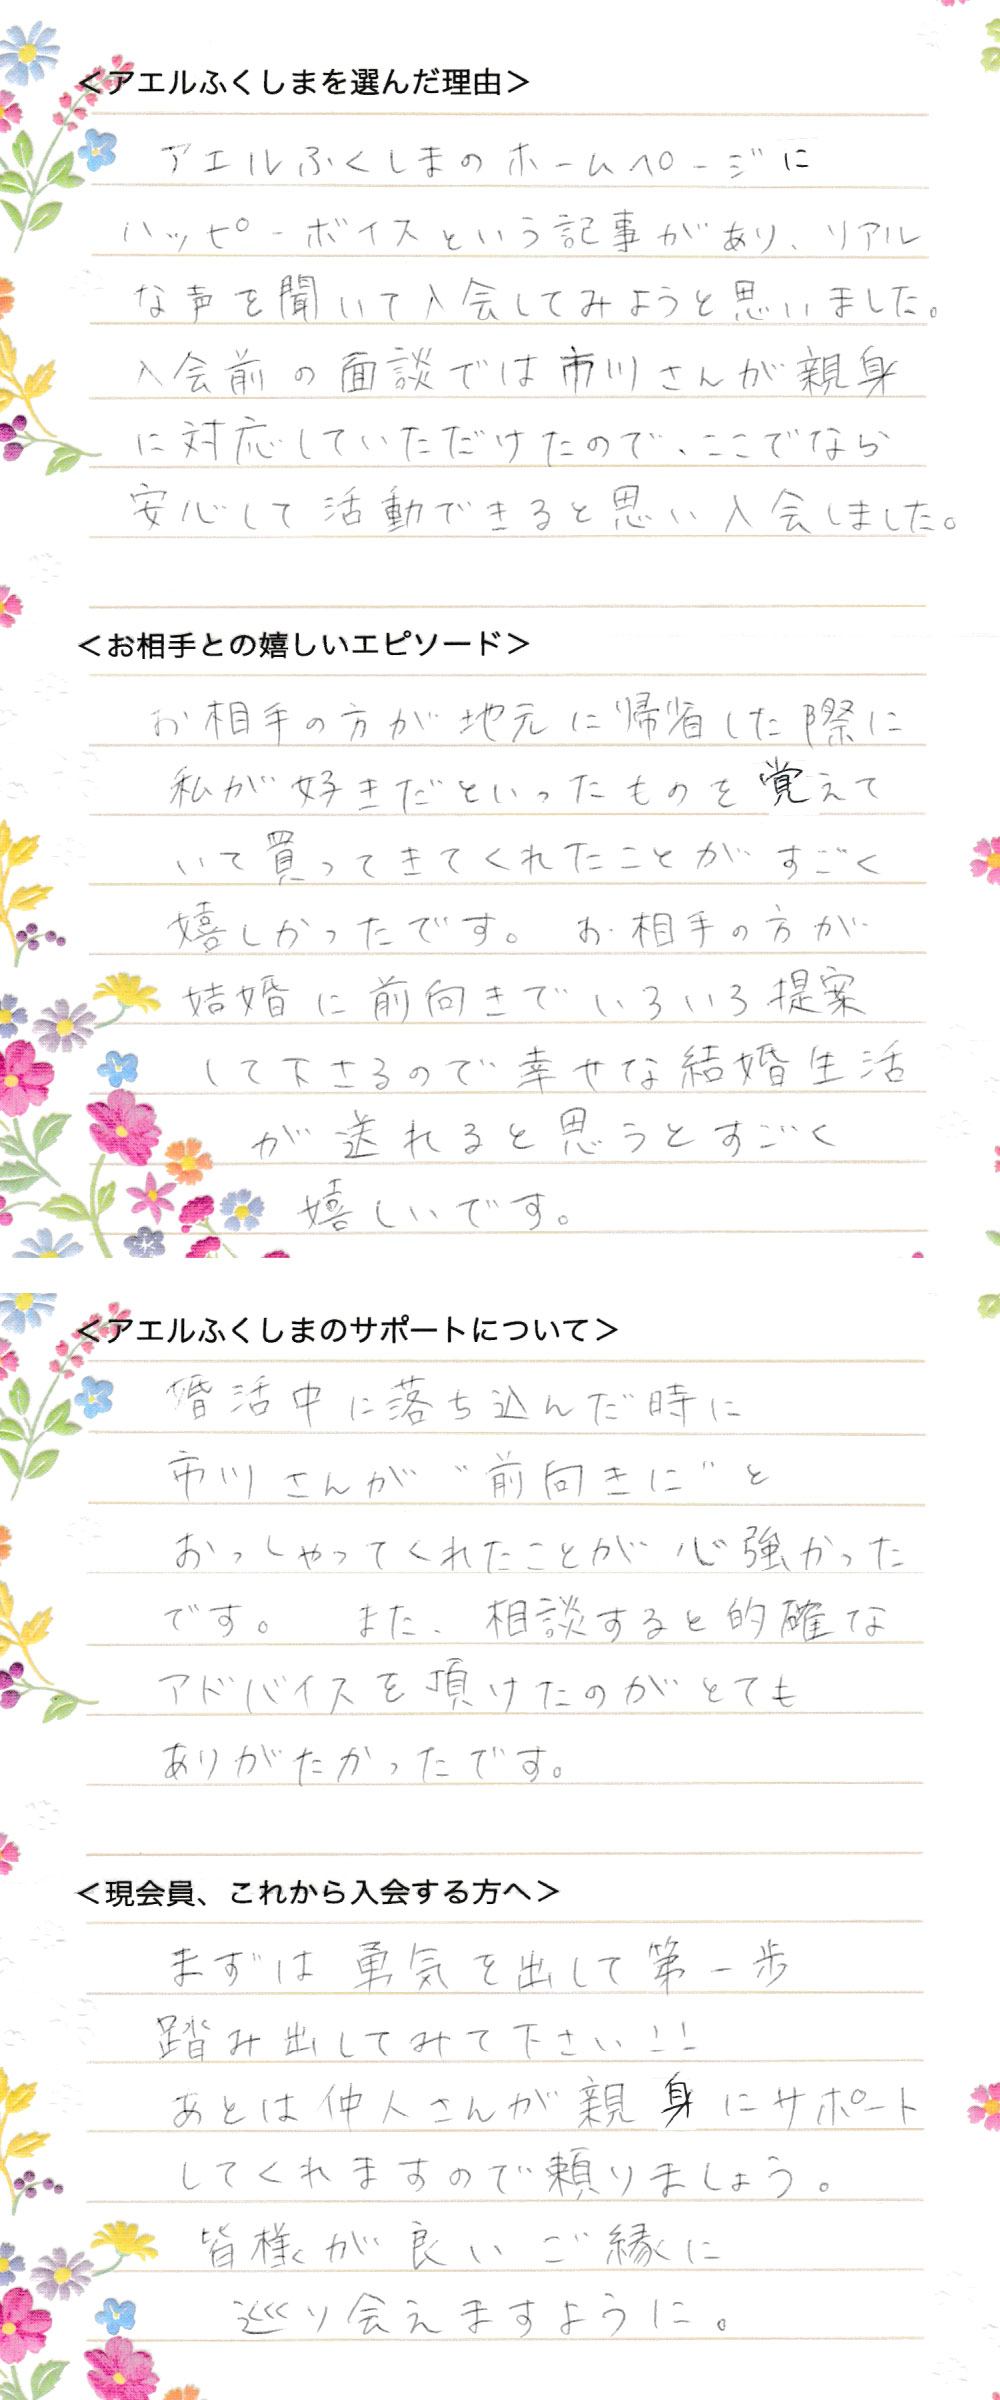 ＜アエルふくしまを選んだ理由＞
アエルふくしまのホームページに
ハッピーボイスという記事があり、リアル
な声を聞いて入会してみようと思いました。
入会前の面談では市川さんが親身
に対応していただけたので、ここでなら
安心して活動できると思い入会しました。
＜お相手との嬉しいエピソード＞
お相手の方が地元に帰省した際に
私が好きだといったものを覚えて
いて買ってきてくれたことがすごく
嬉しかったです。 お相手の方が
結婚に前向きでいろいろ提案
して下さるので幸せな結婚生活
が送れると思うとすごく
嬉しいです。
＜アエルふくしまのサポートについて＞
婚活中に落ち込んだ時に
市川さんが"前向きに"と
おっしゃってくれたことが心強かった
です。 また、相談すると的確な
アドバイスを頂けたのがとても
ありがたかったです。
＜現会員、これから入会する方へ＞
まずは勇気を出して第一歩
踏み出してみて下さい!!
あとは仲人さんが親身にサポート
してくれますので頼りましょう。
皆様が良いご縁に
巡り会えますように。